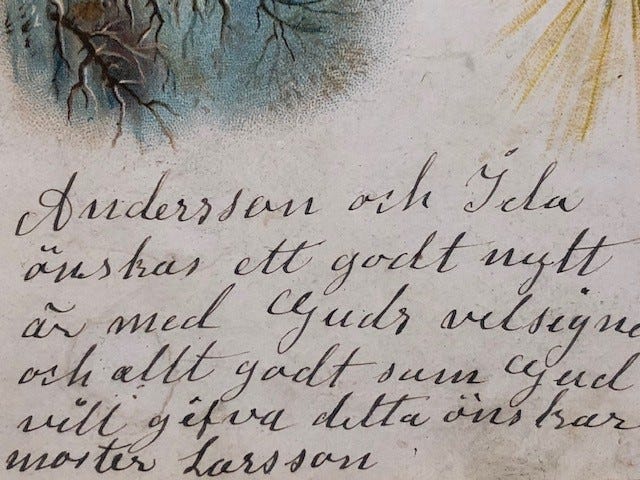 Andersson och Ida
önskas ett godt nytt
år med Guds velsigne
och allt godt som Gud
vill gifva detta önskar
moster Larsson